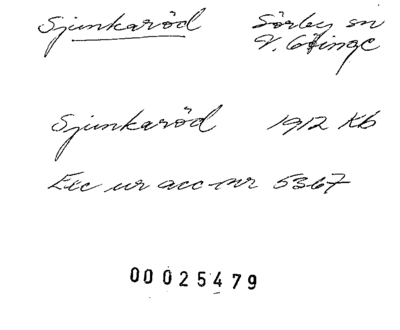 Sjunkaröd Sörby sn
V. Göinge
Sjunkaröd 1912 Kb
Exc ur acc-nr 5367
00025479